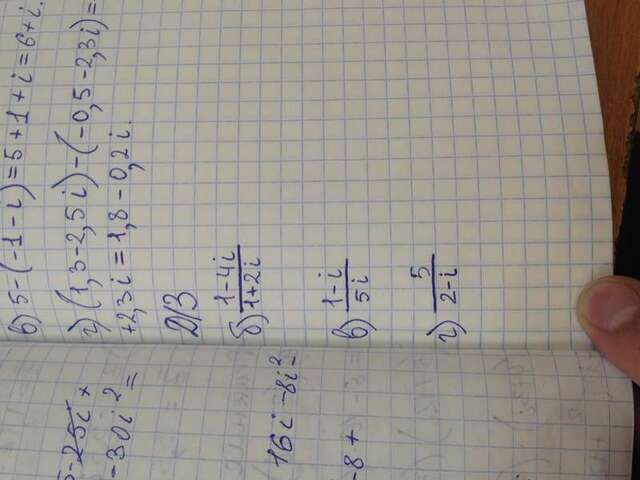 в) 5-(-1-i)=5+1+i=6+i.
г) (1,3-2,5i)-(-0,5-2,3i)=
+2,3i=1,8-0,2i.
Д/З
б) 1-4i / 1+2i
в) 1-i / 5i
г) 5 / 2-i
-25i+
-30i²=
16i-8i²-
-8+